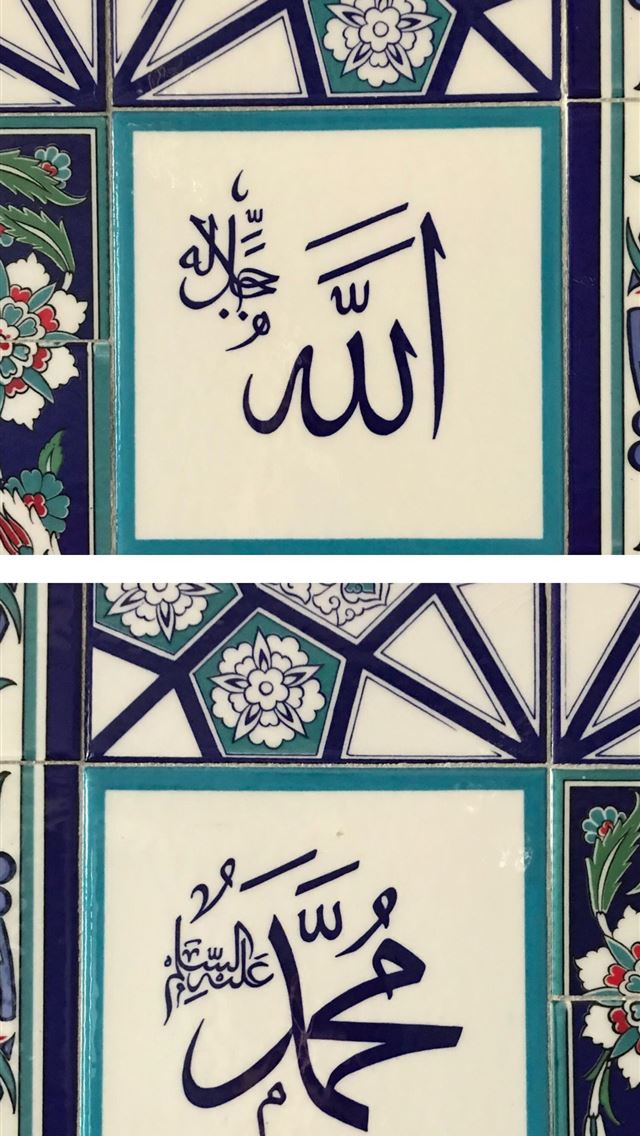 اللّٰه جلّ جلاله
محمّد عليه السّلام